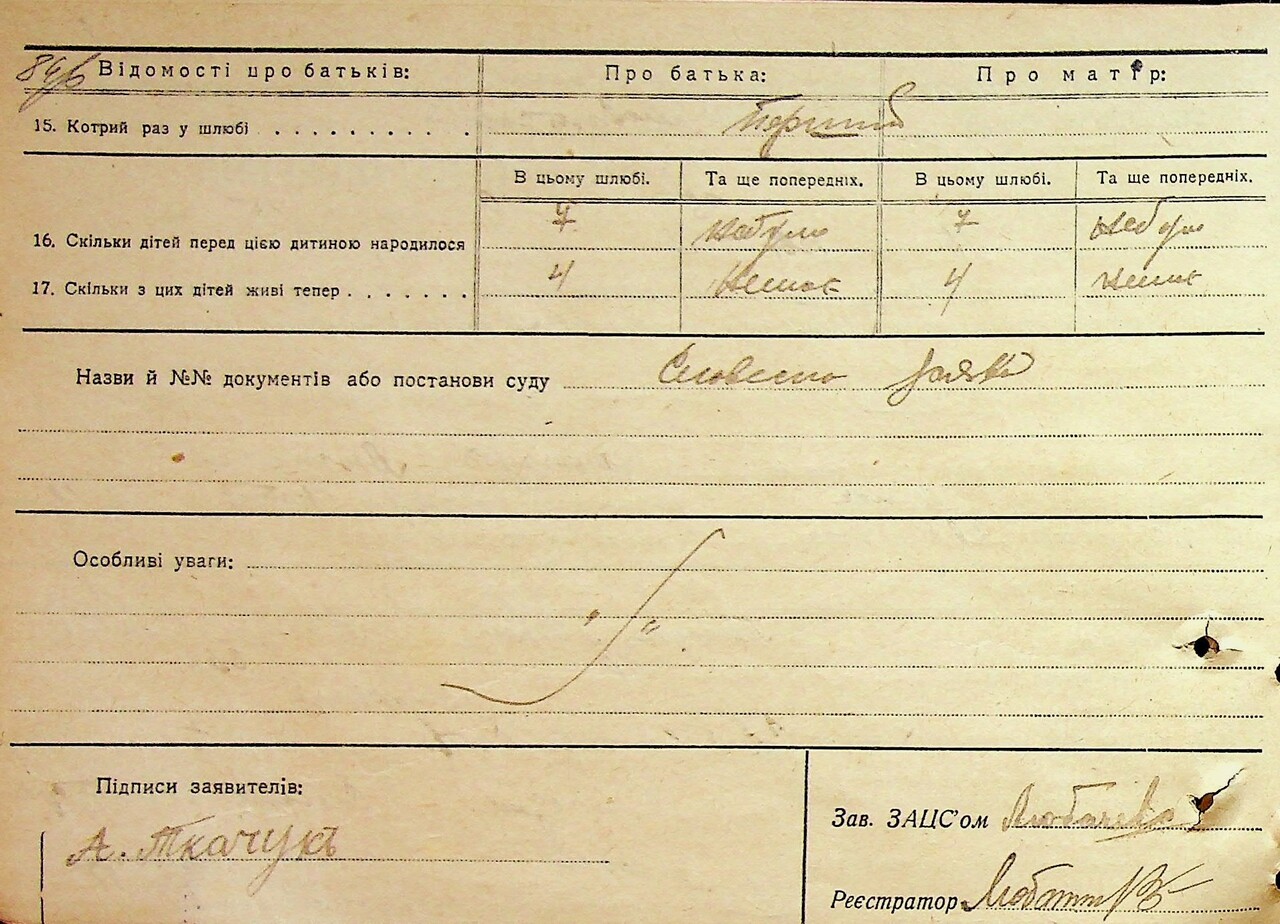 84б Відомості про батьків: Про батька: Про матір:
15. Котрий раз у шлюбі . . . . . . . . . . . Перший
В цьому шлюбі. Та ще попередніх. В цьому шлюбі. Та ще попередніх.
16. Скільки дітей перед цією дитиною народилося 7 не було 7 не було
17. Скільки з цих дітей живі тепер . . . . . . . 4 немає 4 немає
Назви й №№ документів або постанови суду Словесно заява
Особливі уваги:
Підписи заявителів:
А. Ткачукъ
Зав. ЗАЦС'ом
Реєстратор